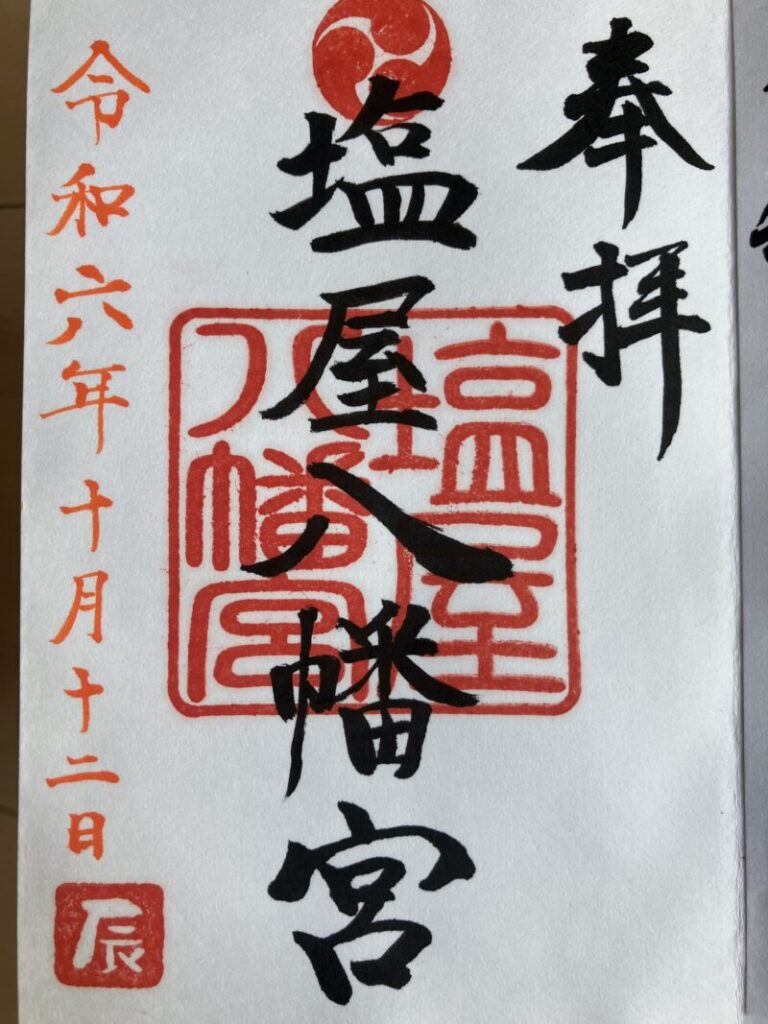 奉拝
塩屋八幡宮
塩屋
八幡宮
令和六年十月十二日
辰